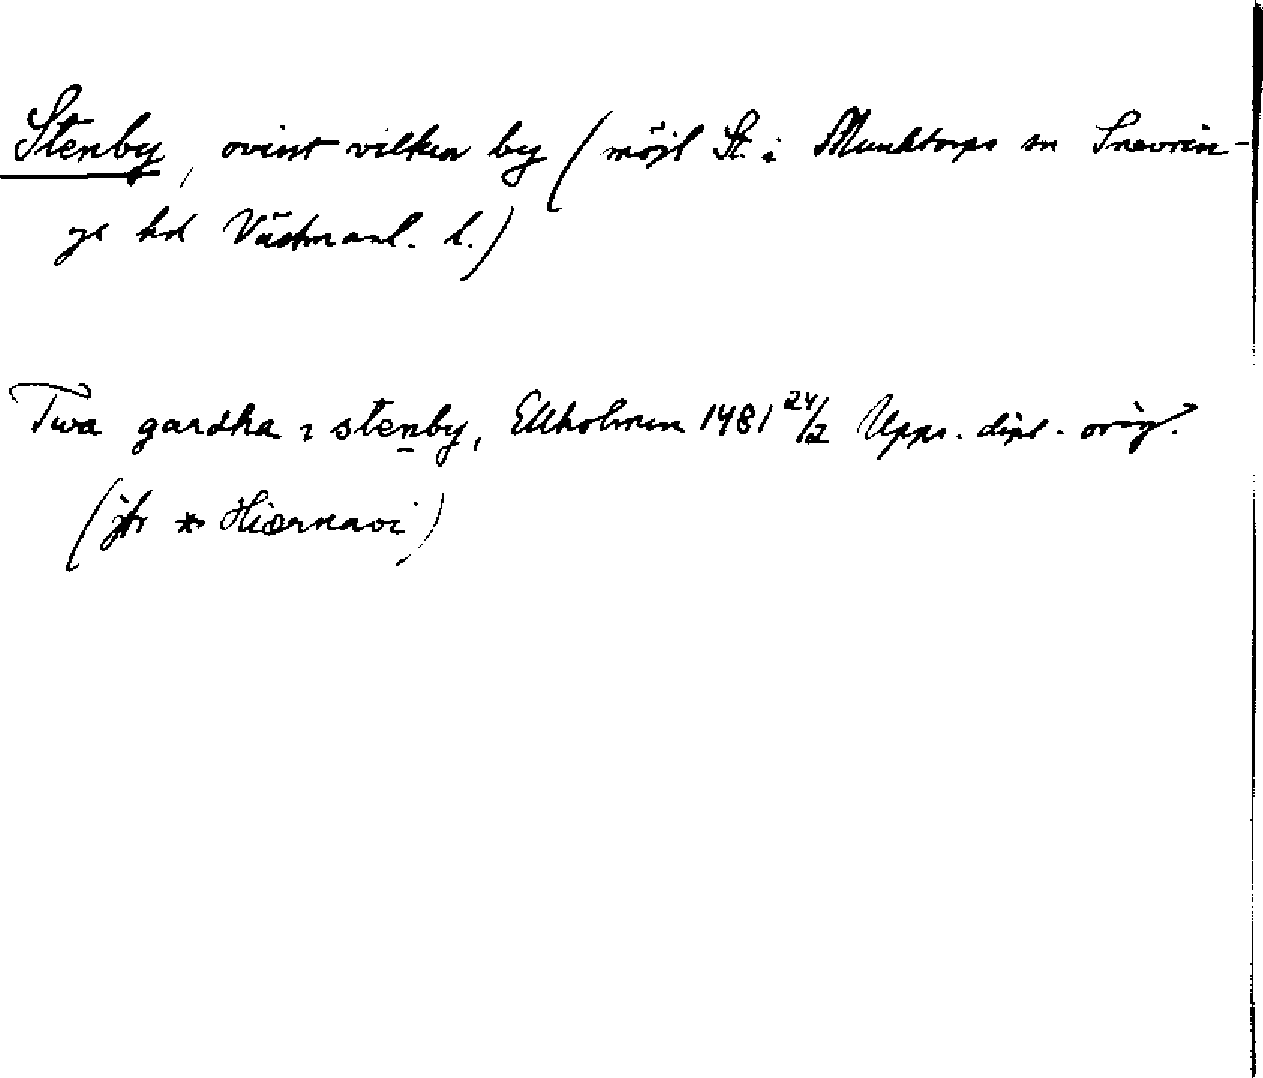 Stenby, ovisst vilken by (möjl St. i Munktorps sn Snevrin-
ge hd Västmanl. l.)
Twa gardha i stenby, Ekholmen 1481 24/2 Upps. dipl. orig.
(jfr * Hiærnavi)